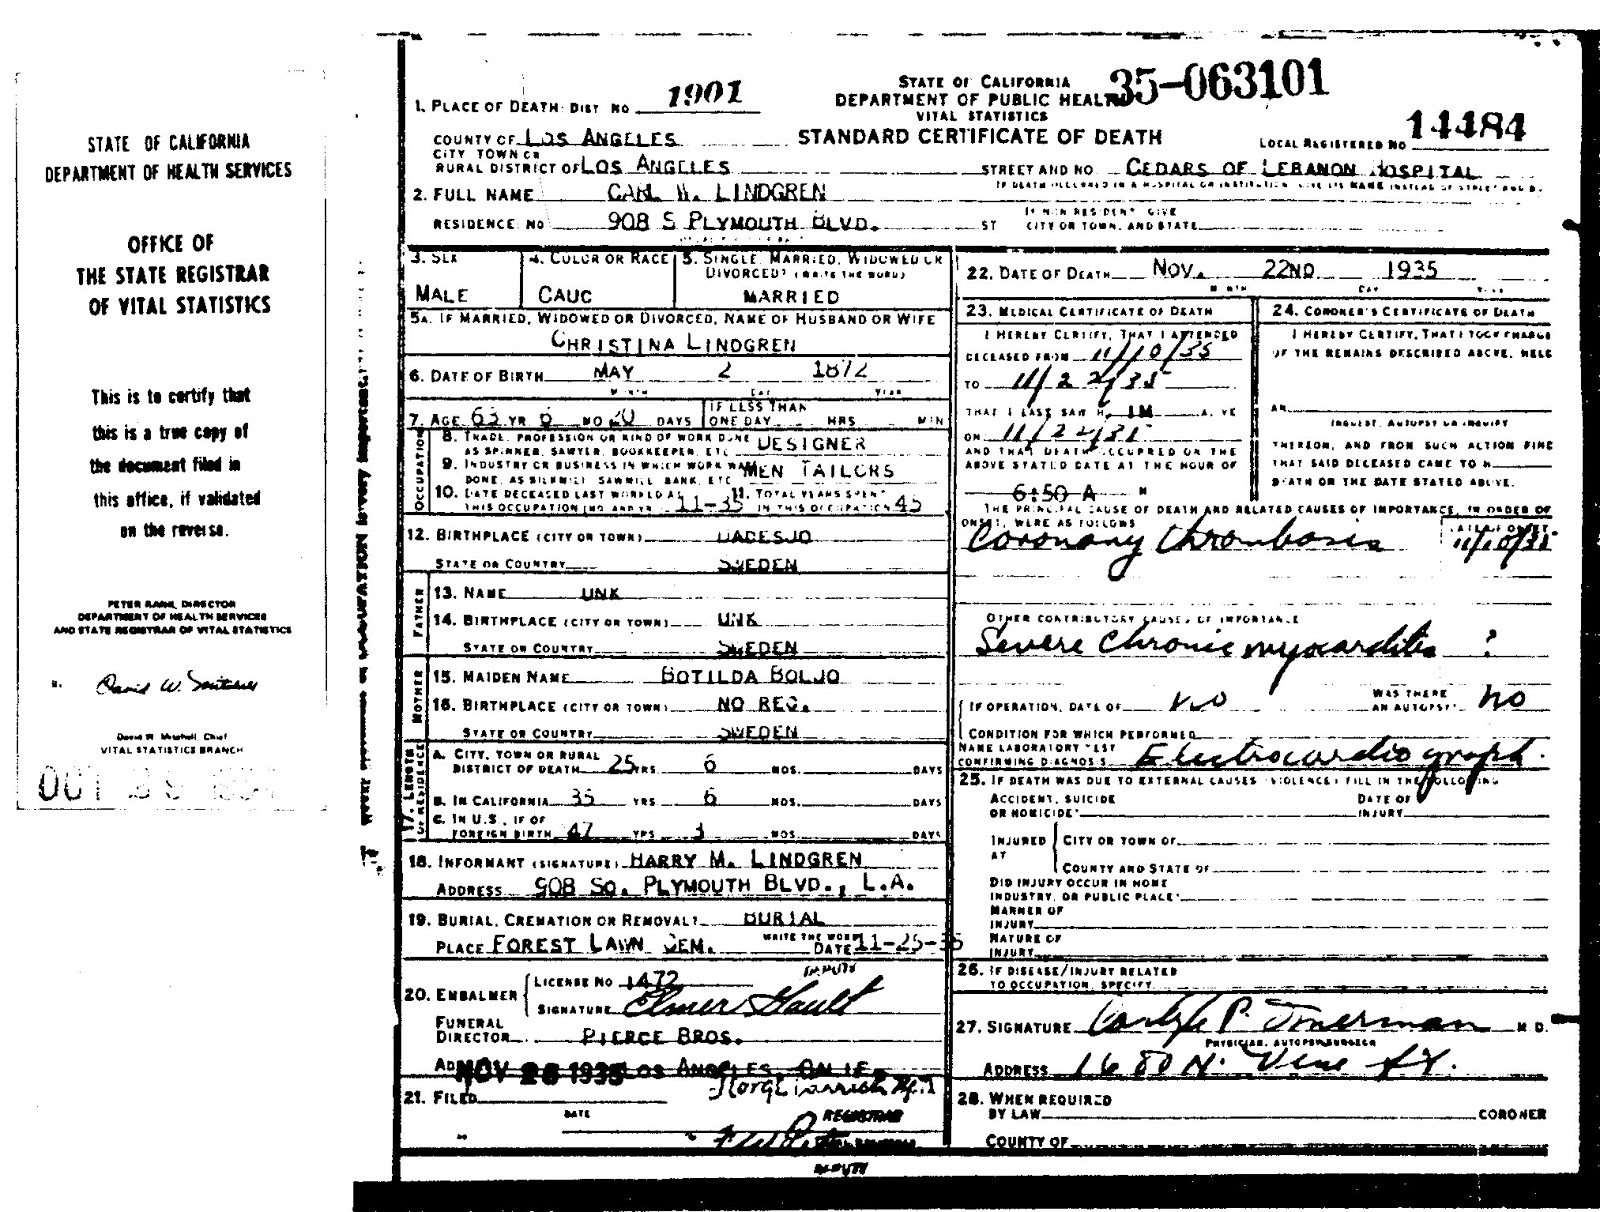 STATE OF CALIFORNIA
DEPARTMENT OF HEALTH SERVICES
OFFICE OF
THE STATE REGISTRAR
OF VITAL STATISTICS
This is to certify that
this is a true copy of
the document filed in
this office, if validated
on the reverse.
DIRECTOR
DEPARTMENT OF HEALTH SERVICES
AND STATE REGISTRAR OF VITAL STATISTICS
David W. Mitchell
David W Mitchell, Chief
VITAL STATISTICS BRANCH
STATE OF CALIFORNIA
DEPARTMENT OF PUBLIC HEALTH
VITAL STATISTICS
STANDARD CERTIFICATE OF DEATH
35-063101
LOCAL REGISTERED NO 14484
1. PLACE OF DEATH: DIST NO 1901
COUNTY OF LOS ANGELES
CITY TOWN OR
RURAL DISTRICT OF LOS ANGELES
STREET AND NO CEDARS OF LEBANON HOSPITAL
IF DEATH OCCURRED IN A HOSPITAL OR INSTITUTION GIVE ITS NAME INSTEAD OF STREET AND NO.
2. FULL NAME CARL W. LINDGREN
RESIDENCE: NO 908 S PLYMOUTH BLVD. ST
IF NON RESIDENT GIVE
CITY OR TOWN, AND STATE
3. SEX
MALE
4. COLOR OR RACE
CAUC
5. SINGLE, MARRIED, WIDOWED OR
DIVORCED? (WRITE THE WORD)
MARRIED
5A. IF MARRIED, WIDOWED OR DIVORCED, NAME OF HUSBAND OR WIFE
CHRISTINA LINDGREN
6. DATE OF BIRTH MAY 2 1872
MONTH DAY YEAR
7. AGE 63 YR 6 MO 20 DAYS
IF LESS THAN
ONE DAY HRS MIN
OCCUPATION
8. TRADE, PROFESSION OR KIND OF WORK DONE
AS SPINNER, SAWYER, BOOKKEEPER, ETC DESIGNER
9. INDUSTRY OR BUSINESS IN WHICH WORK WAS
DONE, AS SILKMILL, SAWMILL, BANK, ETC MEN TAILORS
10. DATE DECEASED LAST WORKED AT
THIS OCCUPATION (MO AND YR) 11-35
11. TOTAL YEARS SPENT
IN THIS OCCUPATION 45
12. BIRTHPLACE (CITY OR TOWN)
STATE OR COUNTRY SWEDEN
FATHER
13. NAME UNK
14. BIRTHPLACE (CITY OR TOWN) UNK
STATE OR COUNTRY SWEDEN
MOTHER
15. MAIDEN NAME BOTILDA BOLJO
16. BIRTHPLACE (CITY OR TOWN) NO REC.
STATE OR COUNTRY SWEDEN
17. LENGTH
OF RESIDENCE
A. CITY, TOWN OR RURAL
DISTRICT OF DEATH 25 YRS 6 MOS. DAYS
B. IN CALIFORNIA 35 YRS 6 MOS. DAYS
C. IN U.S., IF OF
FOREIGN BIRTH 47 YRS MOS DAYS
18. INFORMANT (SIGNATURE) HARRY M. LINDGREN
ADDRESS 908 SO. PLYMOUTH BLVD., L.A.
19. BURIAL, CREMATION OR REMOVAL? BURIAL
WRITE THE WORD
PLACE FOREST LAWN CEM. DATE 11-25-35
20. EMBALMER
LICENSE NO 1472
SIGNATURE Elmer Gault
DEPUTY
FUNERAL
DIRECTOR PIERCE BROS.
LOS ANGELES, CALIF.
21. FILED
DATE
REGISTRAR
DEPUTY
22. DATE OF DEATH NOV. 22ND 1935
MONTH DAY YEAR
23. MEDICAL CERTIFICATE OF DEATH
I HEREBY CERTIFY, THAT I ATTENDED
DECEASED FROM 11/10/35
TO 11/22/35
THAT I LAST SAW H IM ALIVE
ON 11/22/35
AND THAT DEATH OCCURRED ON THE
ABOVE STATED DATE AT THE HOUR OF
6:50 A M
24. CORONER'S CERTIFICATE OF DEATH
I HEREBY CERTIFY, THAT I TOOK CHARGE
OF THE REMAINS DESCRIBED ABOVE, HELD
AN
INQUEST, AUTOPSY OR INQUIRY
THEREON, AND FROM SUCH ACTION FIND
THAT SAID DECEASED CAME TO H
DEATH ON THE DATE STATED ABOVE.
THE PRINCIPAL CAUSE OF DEATH AND RELATED CAUSES OF IMPORTANCE, IN ORDER OF
ONSET, WERE AS FOLLOWS
DATE OF ONSET
Coronary thrombosis 11/10/35
OTHER CONTRIBUTORY CAUSES OF IMPORTANCE
Severe chronic myocarditis ?
IF OPERATION, DATE OF no
WAS THERE
AN AUTOPSY? no
CONDITION FOR WHICH PERFORMED
NAME LABORATORY TEST
CONFIRMING DIAGNOSIS Electrocardiograph.
25. IF DEATH WAS DUE TO EXTERNAL CAUSES (VIOLENCE) FILL IN THE FOLLOWING
ACCIDENT, SUICIDE
OR HOMICIDE?
DATE OF
INJURY
INJURED
AT
CITY OR TOWN OF
COUNTY AND STATE OF
DID INJURY OCCUR IN HOME
INDUSTRY, OR PUBLIC PLACE?
MANNER OF
INJURY
NATURE OF
INJURY
26. IF DISEASE/INJURY RELATED
TO OCCUPATION, SPECIFY
27. SIGNATURE M.D.
PHYSICIAN, AUTOPSY SURGEON
ADDRESS 1680 N. Vine St.
28. WHEN REQUIRED
BY LAW CORONER
COUNTY OF